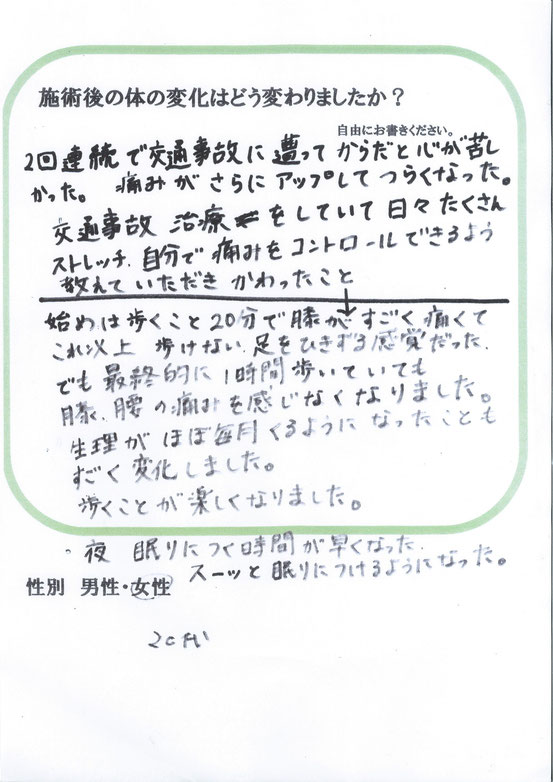 施術後の体の変化はどう変わりましたか？
自由にお書きください。
2回連続で交通事故に遭ってからだと心が苦し
かった。 痛みがさらにアップしてつらくなった。
交通事故 治療 をしていて日々たくさん
ストレッチ、自分で痛みをコントロールできるよう
教えていただき かわったこと
始めは歩くこと20分で膝がすごく痛くて
これ以上 歩けない、足をひきずる感覚だった、
でも最終的に1時間歩いていても
膝、腰の痛みを感じなくなりました。
生理がほぼ毎月くるようになったことも
すごく変化しました。
歩くことが楽しくなりました。
・夜 眠りにつく時間が早くなった、
スーッと眠りにつけるようになった。
性別 男性・女性
20代